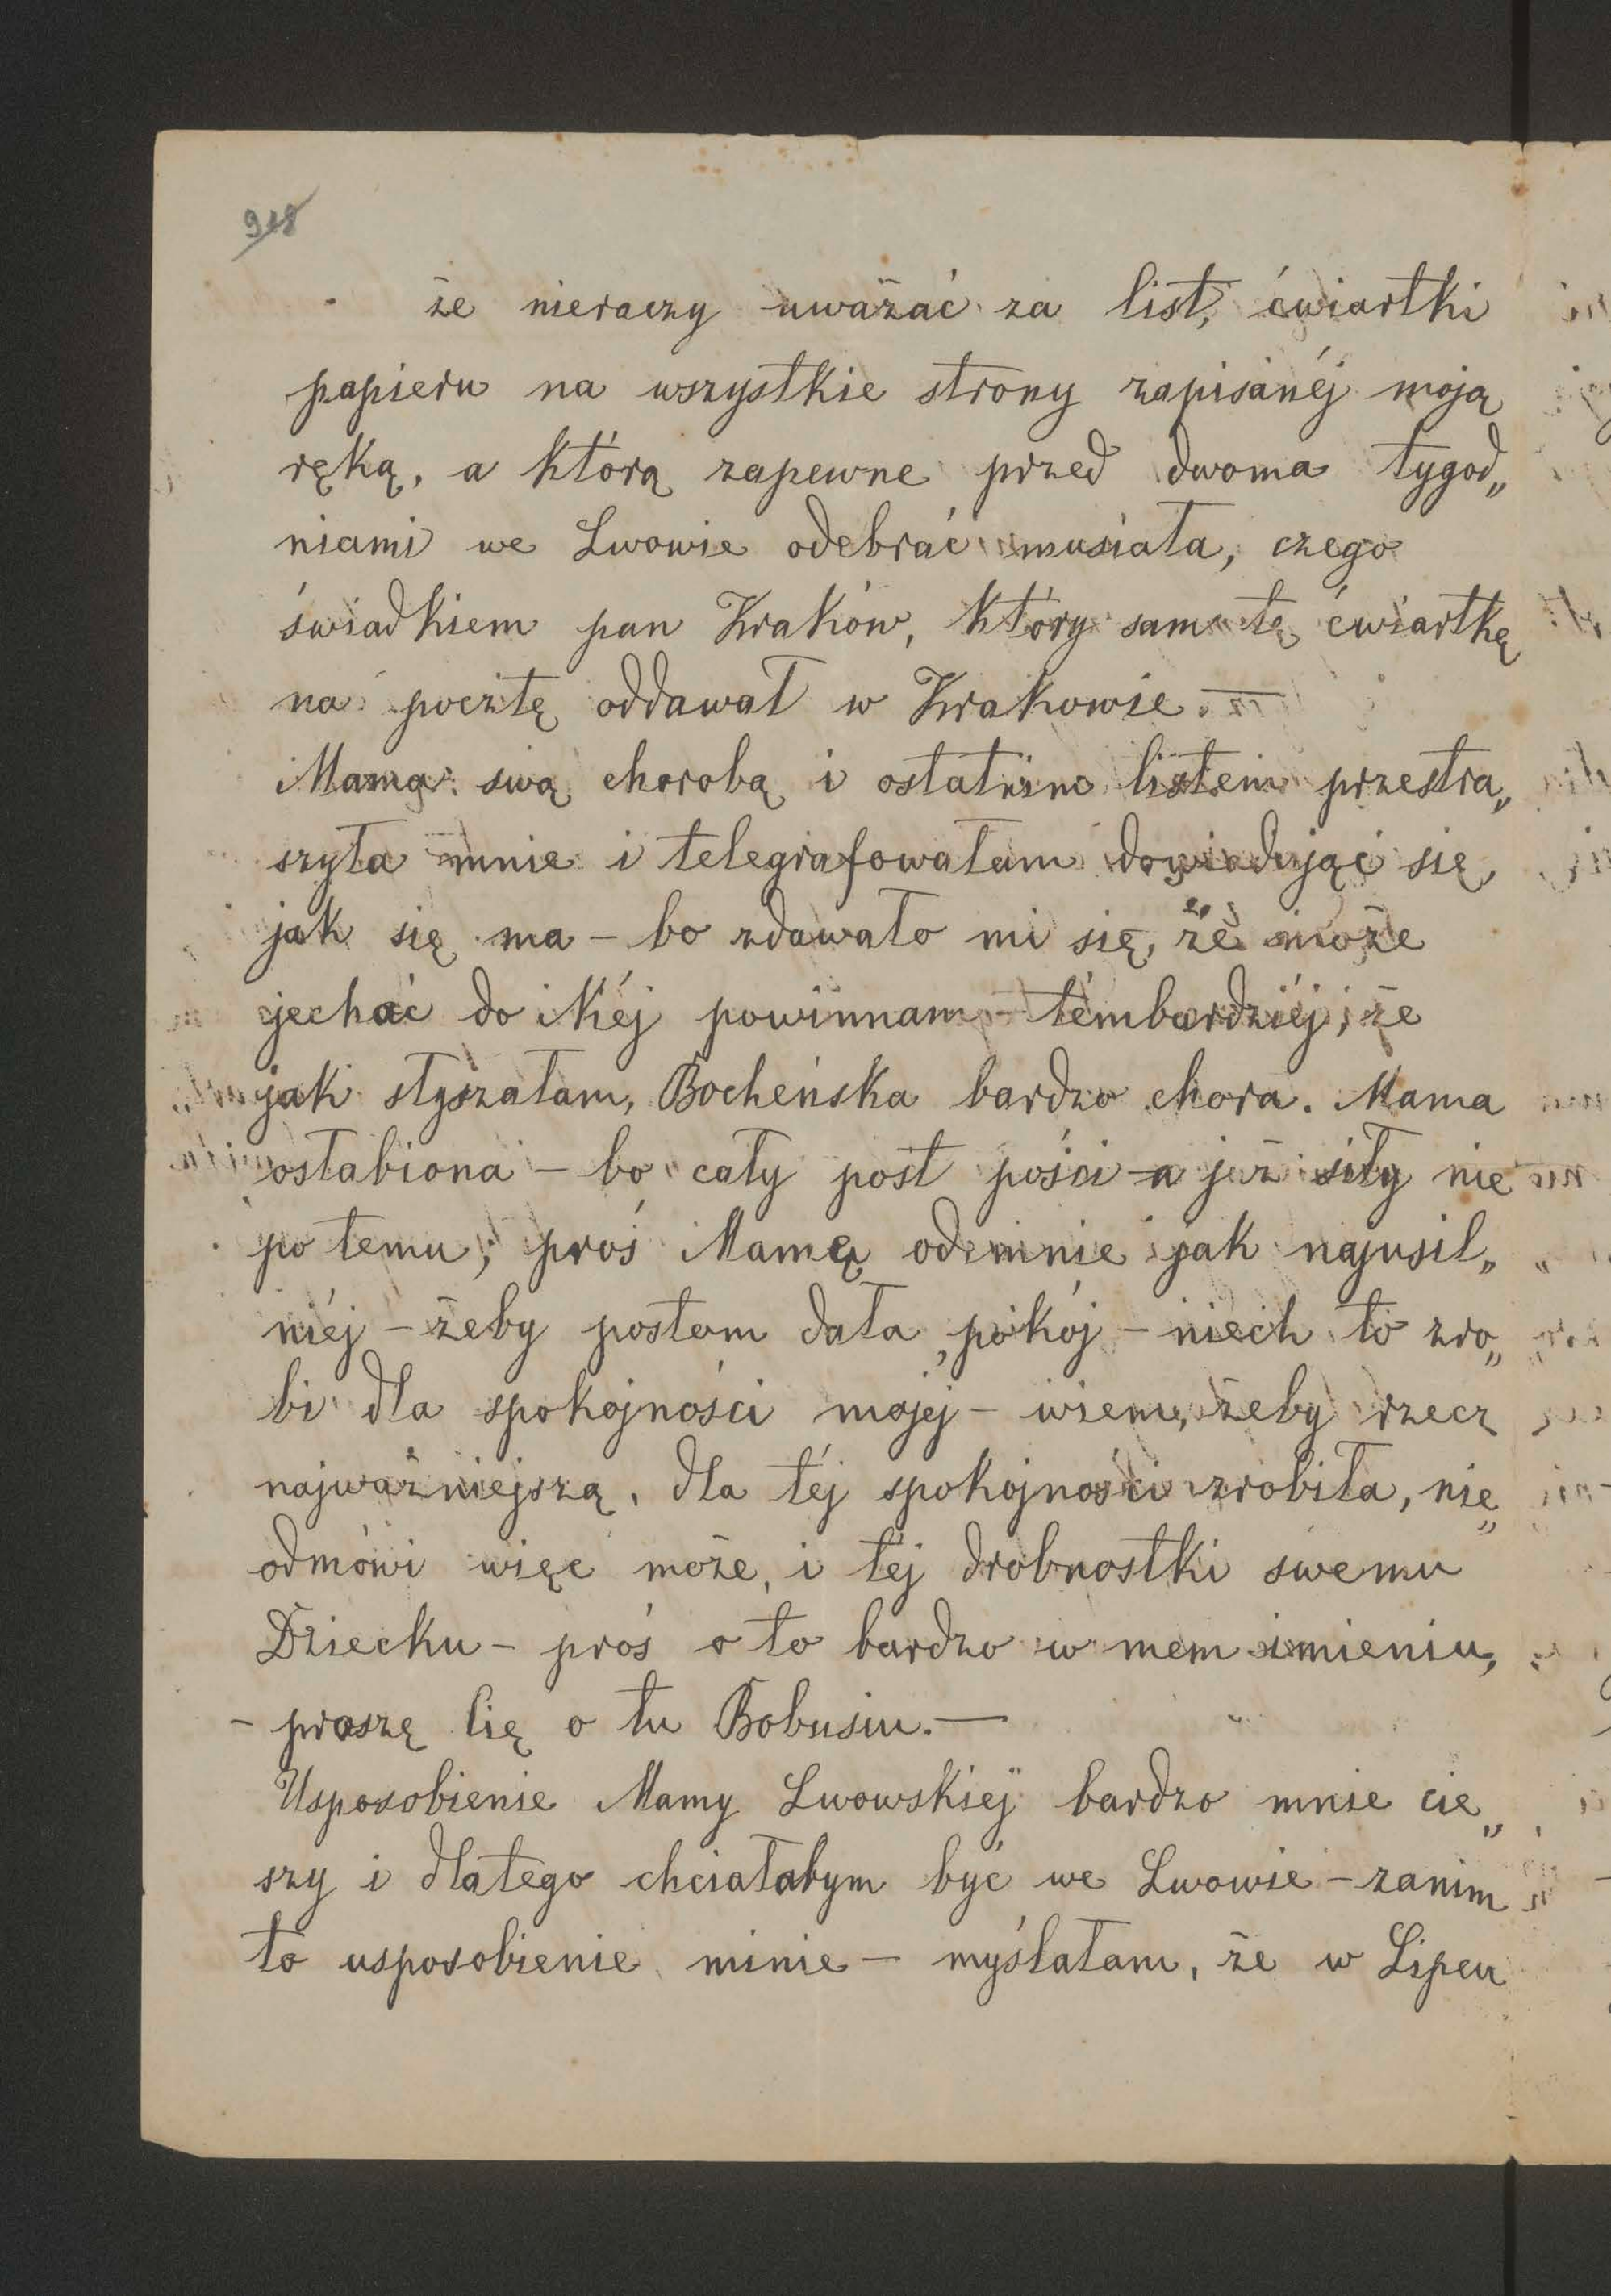 918
że nieraczy uważać za list, ćwiartki
papieru na wszystkie strony zapisanéj moją
ręką, a którą zapewne przed dwoma tygod„
niami we Lwowie odebrać musiała, czego
świadkiem pan Kraków, który sam tę ćwiartkę
na pocztę oddawał w Krakowie. —
Mama swą chorobą i ostatnim listem przestra„
szyła mnie i telegrafowałam dowiadując się,
jak się ma – bo zdawało mi się, że może
jechać do Niéj powinnam – témbardziéj, że
jak słyszałam, Bocheńska bardzo chora. Mama
osłabiona – bo cały post pości – a już siły nie
po temu; proś Mamę odemnie jak najusil„
niéj – żeby postom dała pokój – niech to zro„
bi dla spokojności mojéj – wiem, żeby rzecz
najważniejszą, dla téj spokojności zrobiła, nie
odmówi więc może, i téj drobnostki swemu
Dziecku – proś o to bardzo w mem imieniu,
– proszę Cię o tu Bobusiu. —
Usposobienie Mamy Lwowskiéj bardzo mnie cie„
szy i dlatego chciałabym być we Lwowie – zanim
to usposobienie minie – myślałam, że w Lipcu